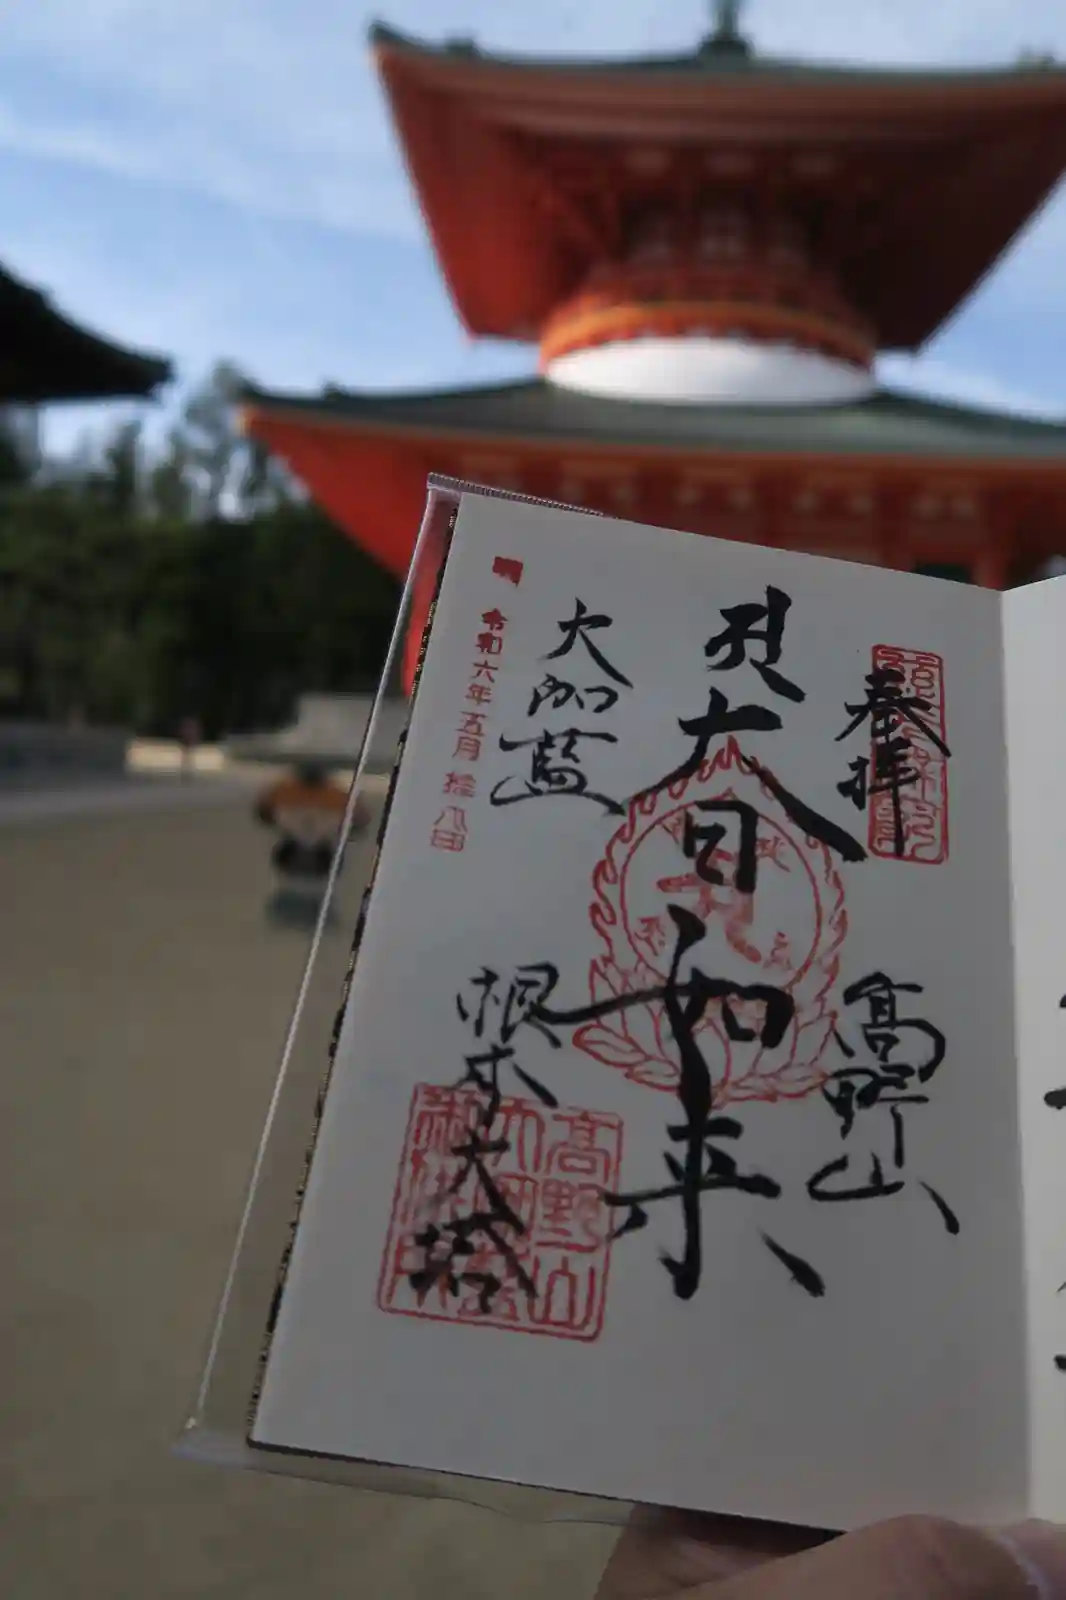 奉拝
高野山
大日如来
大伽藍
根本大塔
令和六年五月拾八日
高野山